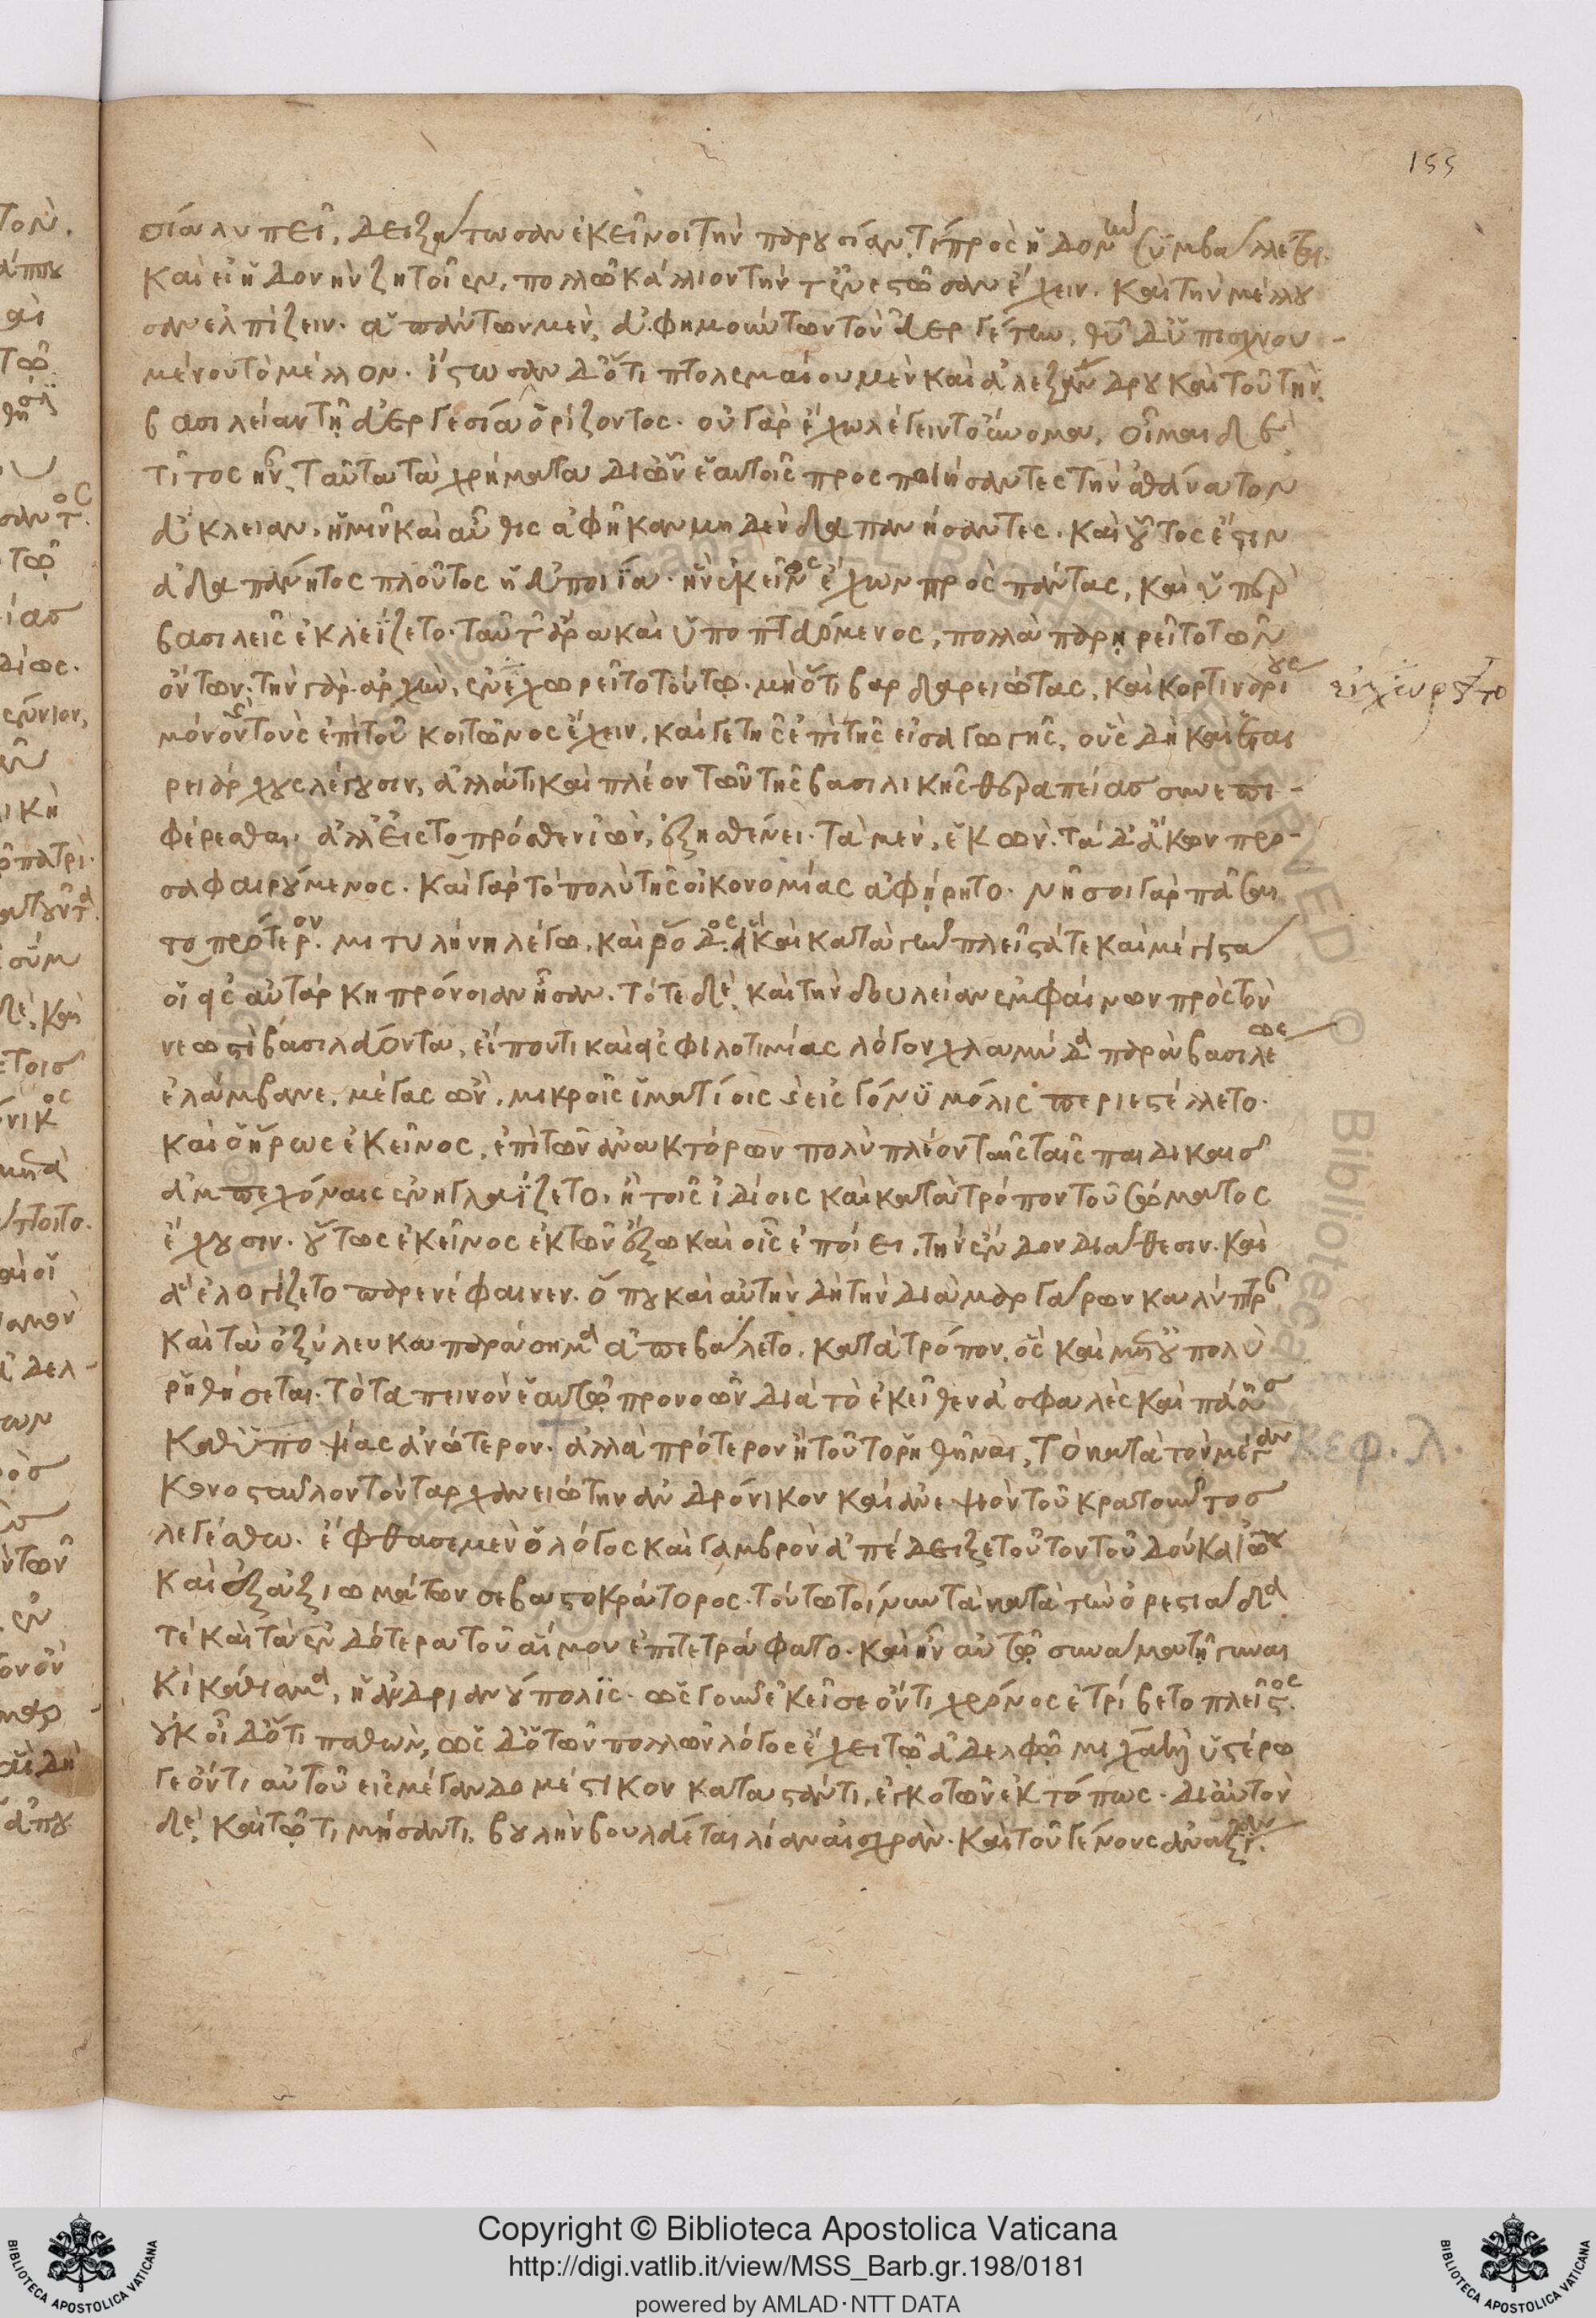 155
σίαν λυπεῖ, δειξάτωσαν ἐκεῖνοι τὴν παρουσίαν, τί πρὸς ἡδονὴν συμβάλλεται.
καὶ εἰ ἡδονὴν ζητοῖεν, πολλῷ κάλλιον τὴν
σαν ἐλπίζειν. ἁπάντων μὲν, εὐφημούντων τὸν εὐεργέτην, θυ δ' ὑπισχνου-
μένου τὸ μέλλον. ἴστωσαν δ' ὅτι πτολεμαίου μὲν καὶ ἀλεξάνδρου καὶ τοῦ τὴν
βασιλείαν τῇ εὐεργεσίᾳ ὁρίζοντος. οὐ γὰρ ἔχω λέγειν τοὔνομα, οἶμαι δὲ
τίτος ἦν, ταῦτα τὰ χρήματα δι' ὧν ἑαυτοῖς προσποιήσαντες τὴν ἀθάνατον
εὔκλειαν, ἡμῖν καὶ αὖθις ἀφῆκαν μηδὲν δαπανήσαντες. καὶ οὗτός ἐστιν
ἀδαπάνητος πλοῦτος ἡ εὐποιΐα. ἣν ἐκεῖνος ἔχων πρὸς πάντας, καὶ ὑπὲρ
βασιλεῖς ἐκλεΐζετο. ταῦτ' ἄρα καὶ ὑποπτευόμενος, πολλὰ παρῃρεῖτο τῶν
ὄντων. τὴν γὰρ ἀρχὴν, ἐνεχωρεῖτο τούτῳ. μὴ ὅτι βαρδαρειώτας, καὶ κορτιναρίους
μόνον τοὺς ἐπὶ τοῦ κοιτῶνος ἔχειν, καί γε τῆς ἐπὶ τῆς εἰσαγωγῆς, οὓς δὴ καὶ ἑται
ρειάρχους λέγουσιν, ἀλλά τι καὶ πλέον τῶν τῆς βασιλικῆς θεραπείας συνεπι-
φέρεσθαι. ἀλλ' εἰς τὸ πρόσθεν ἰὼν, ἐξησθένει. τὰ μὲν, ἑκών. τὰ δ' ἄκων προ-
σαφαιρούμενος. καὶ γὰρ τὸ πολὺ τῆς οἰκονομίας ἀφῄρητο. νῆσοι γὰρ πᾶσαι
τὸ πρότερον. μιτυλήνη λέγω, καὶ ῥόδος. εἰ καὶ κατὰ γῆν πλεῖστά τε καὶ μέγιστα
οἱ εἰς αὐτάρκη πρόνοιαν ἦσαν. τότε δὲ, καὶ τὴν δουλείαν ἐμφαίνων πρὸς τὸν
νεωστὶ βασιλεύοντα, εἴπου τι καὶ εἰς φιλοτιμίας λόγον χλαμύδα παρὰ βασιλέως
ἐλάμβανε, μέγας ὢν, μικροῖς ἱματίοις ἐς γόνυ μόλις περιεστέλλετο.
καὶ ὁ ἥρως ἐκεῖνος, ἐπὶ τῶν ἀνακτόρων πολὺ πλέον ταῖς παιδικαῖς
ἀμπεχόναις ἐνηγλαΐζετο, ἢ τοῖς ἰδίοις καὶ κατὰ τρόπον τοῦ σώματος
ἔχουσιν. οὕτως ἐκεῖνος ἐκ τῶν ἔξω καὶ οἷς ἐποίει, τὴν ἔνδον διάθεσιν. καὶ
εὖ ἐλογίζετο παρενέφαινεν. ὅπου καὶ αὐτὴν δὴ τὴν διὰ μαργάρων καλύπτραν
καὶ τὰ ὀξύλευκα παράσημα ἀπεβάλετο, κατὰ τρόπον, ὃς καὶ μετ' οὐ πολὺ
ῥηθήσεται. τὸ ταπεινὸν ἑαυτῷ προνοῶν διὰ τὸ ἐκεῖθεν ἀσφαλὲς καὶ πάσης
καθυποψίας ἀνώτερον. ἀλλὰ πρότερον ἢ τοῦτο ῥηθῆναι, τὸ κατὰ τὸν μέγαν
κονοσταῦλον τὸν ταρχανειώτην ἀνδρόνικον καὶ ἀνεψιὸν τοῦ κρατοῦντος
λεγέσθω. ἔφθασε μὲν ὁ λόγος καὶ γαμβρὸν ἀπέδειξε τοῦτον τοῦ δούκα ἰωάννου
καὶ ἐξ ἀξιωμάτων σεβαστοκράτορος. τούτῳ τοίνυν τὰ κατὰ τὴν ὀρεστιάδα
τε καὶ τὰ ἐνδότερα τοῦ αἵμου ἐπιτετράφατο. καὶ ἦν αὐτῷ συνάμα τῇ γυναι
κὶ κάθισμα, ἡ ἀνδριανούπολις. ὡς γοῦν ἐκεῖσε ὄντι χρόνος ἐτρίβετο πλεῖστος.
οὐκ οἶδ' ὅτι παθὼν, ὡς δ' ὁ τῶν πολλῶν λόγος ἔχει τῷ ἀδελφῷ μιχαὴλ ὑστέρῳ
γε ὄντι αὐτοῦ εἰς μέγαν δομέστικον καταστάντι, ἐγκοτῶν ἐκτόπως. δι' αὐτὸν
δὲ, καὶ τῷ τιμήσαντι, βουλὴν βουλεύεται λίαν αἰσχρὰν. καὶ τοῦ γένους ἀναξίαν.
κεφ. λ.
Copyright © Biblioteca Apostolica Vaticana
http://digi.vatlib.it/view/MSS_Barb.gr.198/0181
powered by AMLAD·NTT DATA
BIBLIOTECA APOSTOLICA VATICANA
BIBLIOTECA APOSTOLICA VATICANA